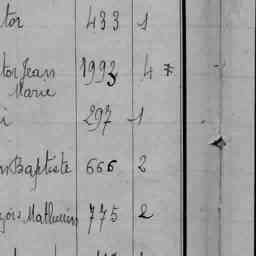 tor 433 1
tor Jean 1993 4 *
Marie
i 297 1
nBaptiste 666 2
çois Mathurin 775 2